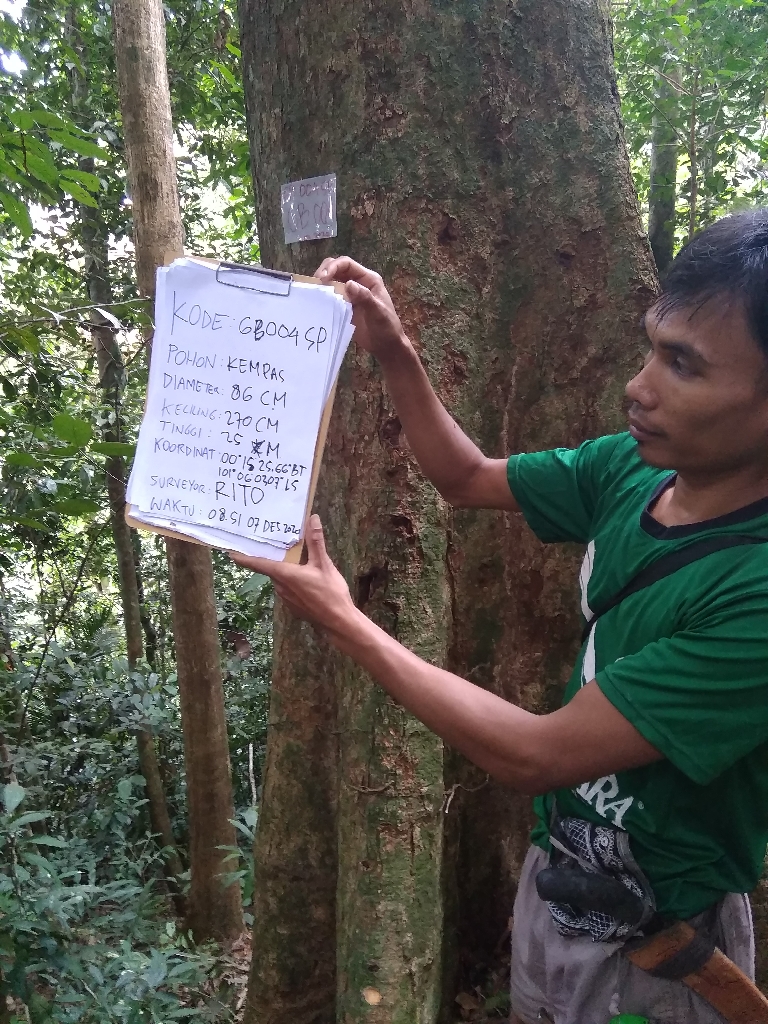 KODE: GB004SP
POHON: KEMPAS
DIAMETER: 86 CM
KELILING: 270 CM
TINGGI: 25 M
KOORDINAT: 00°15 25.66"BT
101°06.0307"LS
SURVEYOR: RITO
WAKTU: 08.51 07 DES 2020